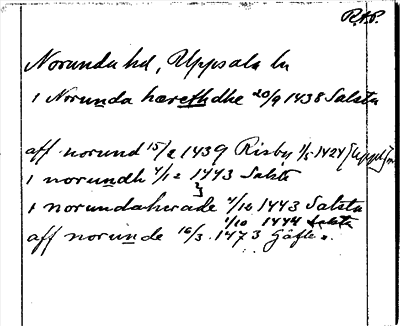 R.A.P.
Norunda hd, Uppsala ln
i Norunda hærethdhe 20/9 1438 Salsta
aff norund 15/2 1439 Risby 1/5 1424 [Uppl]
i norundh 4/12 1443 Salsta
i norundaherade 4/12 1443 Salsta
1/10 1444 Salsta
aff norunde 16/3 1473 Gäfle.